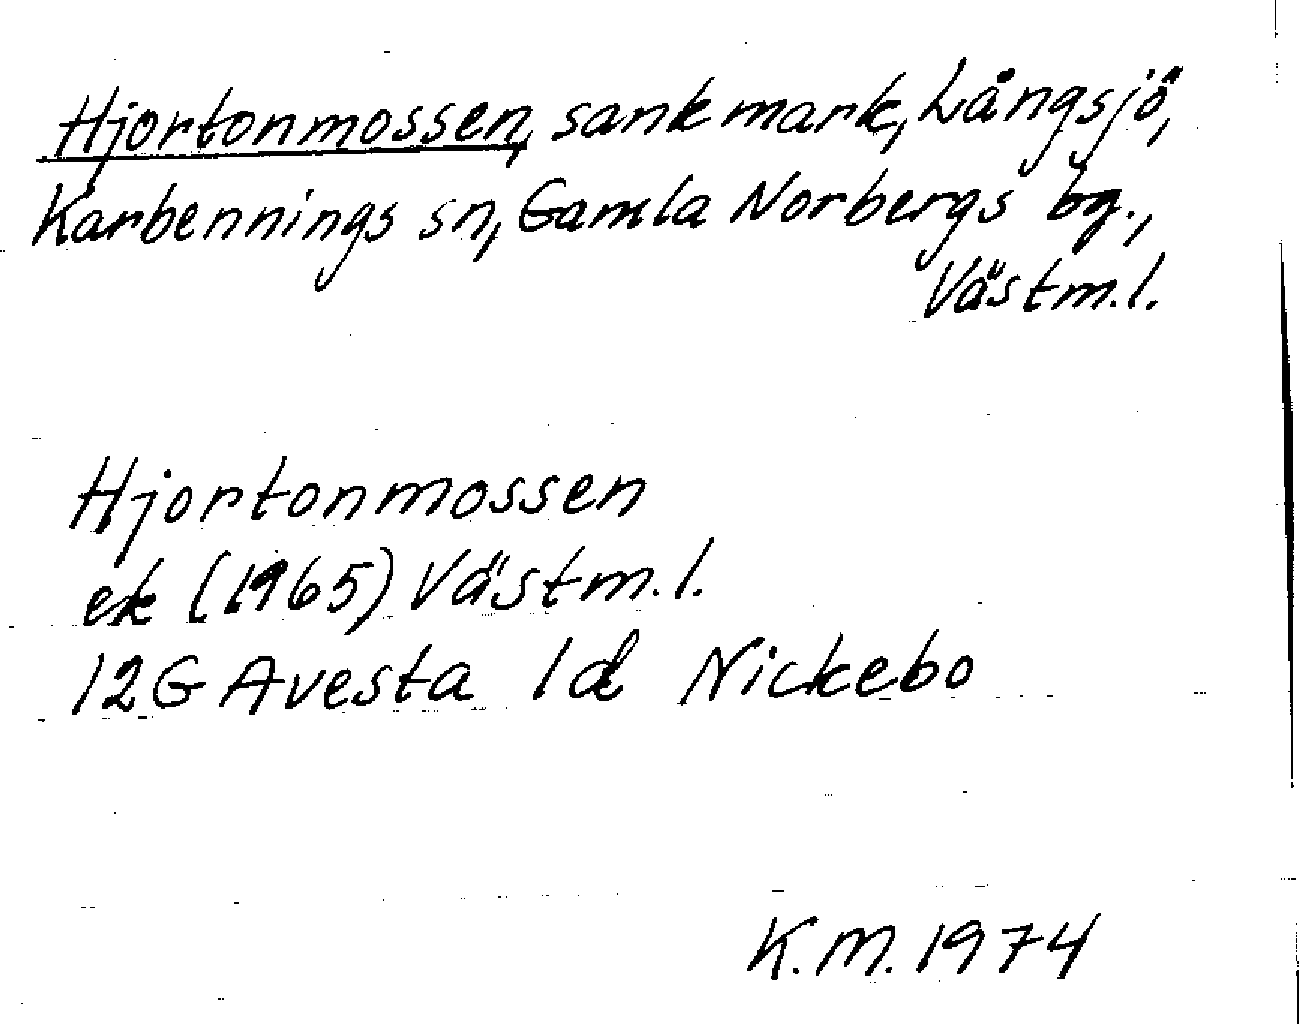 Hjortonmossen, sankmark, Långsjö,
Karbennings sn, Gamla Norbergs bg.,
Västm.l.
Hjortonmossen
ek (1965) Västm.l.
12G Avesta 1d Nickebo
K.M. 1974